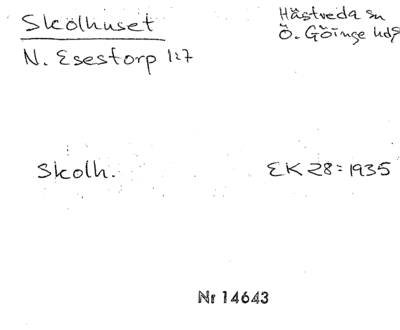 Skolhuset
Hästveda sn
Ö. Göinge hd
N. Esestorp 1:7
Skolh.
EK 28:1935
Nr 14643